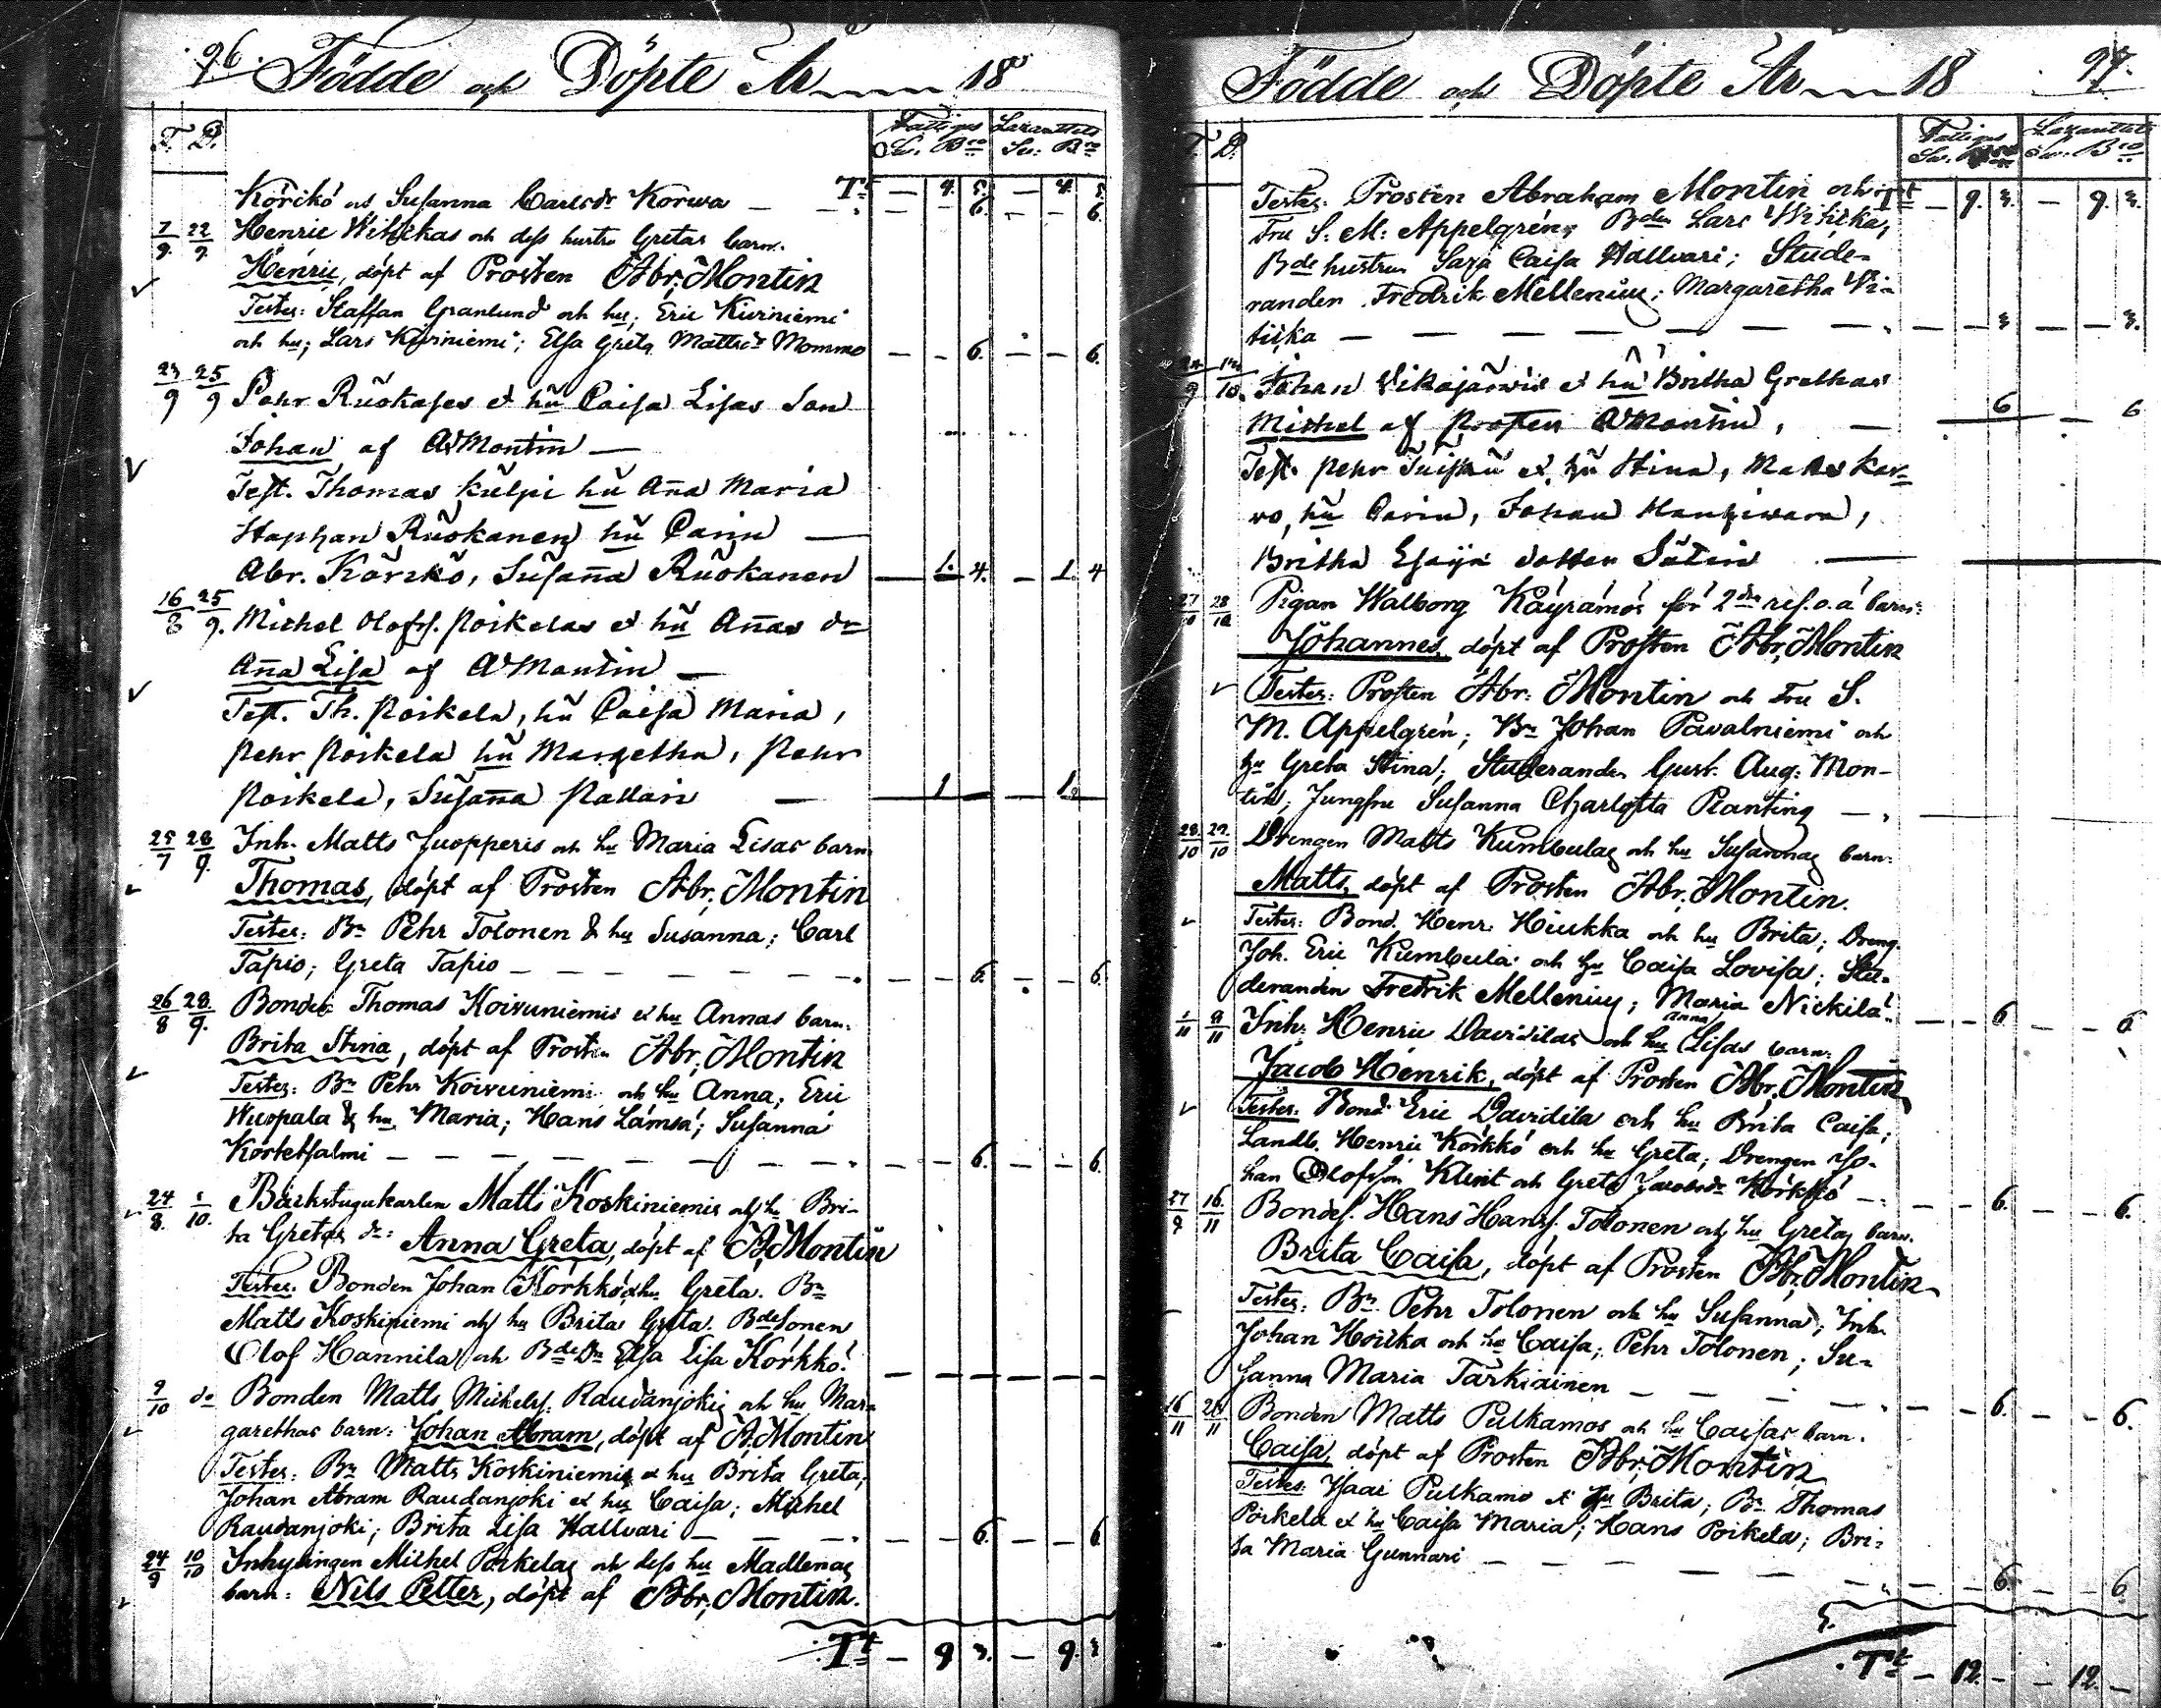 96. Födde och Döpte År 18
F. D. Fattiges Lazarettets
Sv. Bco Sv: Bco
Körkkö och Susanna Carlsdr Korwa — Tt — 4. 5. — 4. 5.
— — 6. — — 6.
7/9 22/9 Henric Witickas och dess hustru Gretas barn.
Henric, döpt af Prosten Abr. Montin
Testes: Staffan Granlund och hu; Eric Kiviniemi
och hu; Lars Kiviniemi; Elsa Greta Mattsdr Mommo — — 6. — — 6.
23/9 25/9 Pehr Ruokases et hu Caisa Lisas Son
Johan af A Montin —
Test. Thomas Kulpi hu Anna Maria
Staphan Ruokanen hu Carin —
Abr. Körkkö, Susanna Ruokanen — 1. 4. — 1. 4
16/8 25/9. Michel Olofss. Poikelas et hu Annas dr
Anna Lisa af A Montin —
Test. Th. Poikela, hu Caisa Maria,
Pehr Poikela hu Margetha, Pehr
Poikela, Susanna Pallari — 1 — — 1.
25/7 28/9. Inh. Matts Juopperis och hu Maria Lisas barn
Thomas, döpt af Prosten Abr. Montin
Testes: Bn Pehr Tolonen & hu Susanna; Carl
Tapio; Greta Tapio — — — 6. — — 6.
26/8 28/9. Bonden Thomas Koivuniemis et hu Annas barn.
Brita Stina, döpt af Prosten Abr. Montin
Testes: Bn Pehr Koivuniemi och hu Anna; Eric
Wuopala & hu Maria; Hans Lämsä; Susanna
Kortetsalmi — — — 6. — — 6.
24/8. 1/10. Backstugukarlen Matts Koskiniemis och hu Bri-
ta Gretas dr: Anna Greta, döpt af A. Montin
Testes. Bonden Johan Körkkö & hu Greta. Bn
Matts Koskiniemi och hu Brita Greta. Bdesonen
Olof Hannila och Bde Dr Elsa Lisa Körkkö.
9/10 do Bonden Matts Michelss. Raudanjokis och hu Mar-
garethas barn: Johan Abram, döpt af A. Montin
Testes: Bn Matts Koskiniemis et hu Brita Greta;
Johan Abram Raudanjoki et hu Caisa; Michel
Raudanjoki; Brita Lisa Hallvari — — — 6. — — 6.
24/9 10/10 Inhysingen Michel Poikelas och dess hu Madlenas
barn: Nils Petter, döpt af Abr. Montin.
Tt — 9 3. — 9. 3
Födde och Döpte År 18 97.
F. D. Fattiges Lazarettets
Sv. Bco Sv. Bco
Testes: Prosten Abraham Montin och Tt — 9. 3. — 9. 3.
Fru S. M: Appelgrén; Bden Lars Witicka;
Bde hustrun Sara Caisa Hallvari; Stude-
randen Fredrik Mellenius; Margaretha Wi-
ticka — — — 3 — — 3.
24/9 14/10. Johan Vikajärwis et hu Britha Grethas
Michel af Prosten A Montin, — 6 — — 6
Test. Pehr Tuisku et hu Stina, Matts Kar-
vo, hu Carin, Johan Hangiwara,
Britha Esaija dotter Sutin —
27/10 28/10 Pigan Walborg Käyrämös för 2dra res. o. ä barn:
Johannes, döpt af Prosten Abr. Montin
Testes: Prosten Abr. Montin och Fru S.
M. Appelgrén; Bn Johan Pawalniemi och
hu Greta Stina; Studeranden Gust. Aug: Mon-
tin; Jungfru Susanna Charlotta Planting —
28/10 29/10 Drengen Matts Kumbulas och hu Susannas barn:
Matts, döpt af Prosten Abr. Montin.
Testes: Bond. Henr. Hiukka och hu Brita; Dreng.
Joh. Eric Kumbula och hu Caisa Lovisa; Stu-
deranden Fredrik Mellenius; Maria Nickilä — — 6. — — 6
1/11 9/11 Inh. Henric Davidilas och hu Anna Lisas barn:
Jacob Henrik, döpt af Prosten Abr. Montin
Testes: Bond. Eric Davidila och hu Brita Caisa;
Landb. Henric Körkkö och hu Greta; Drengen Jo-
han Olofsson Klint och Greta Jacobsdr Körkkö — — 6. — — 6.
27/9 16/11 Bondes. Hans Hanss. Tolonen och hu Gretas barn.
Brita Caisa, döpt af Prosten Abr. Montin
Testes: Bn Pehr Tolonen och hu Susanna; Inh.
Johan Hoikka och hu Caisa; Pehr Tolonen; Su-
sanna Maria Tarkiainen — — — 6. — — 6.
16/11 21/11 Bonden Matts Pulkamos och hu Caisas barn.
Caisa, döpt af Prosten Abr. Montin
Testes: Isaac Pulkamo et hu Brita; Bn Thomas
Poikela et hu Caisa Maria; Hans Poikela; Bri-
ta Maria Gunnari — — — 6. — — 6
Tt — 12. — — 12. —